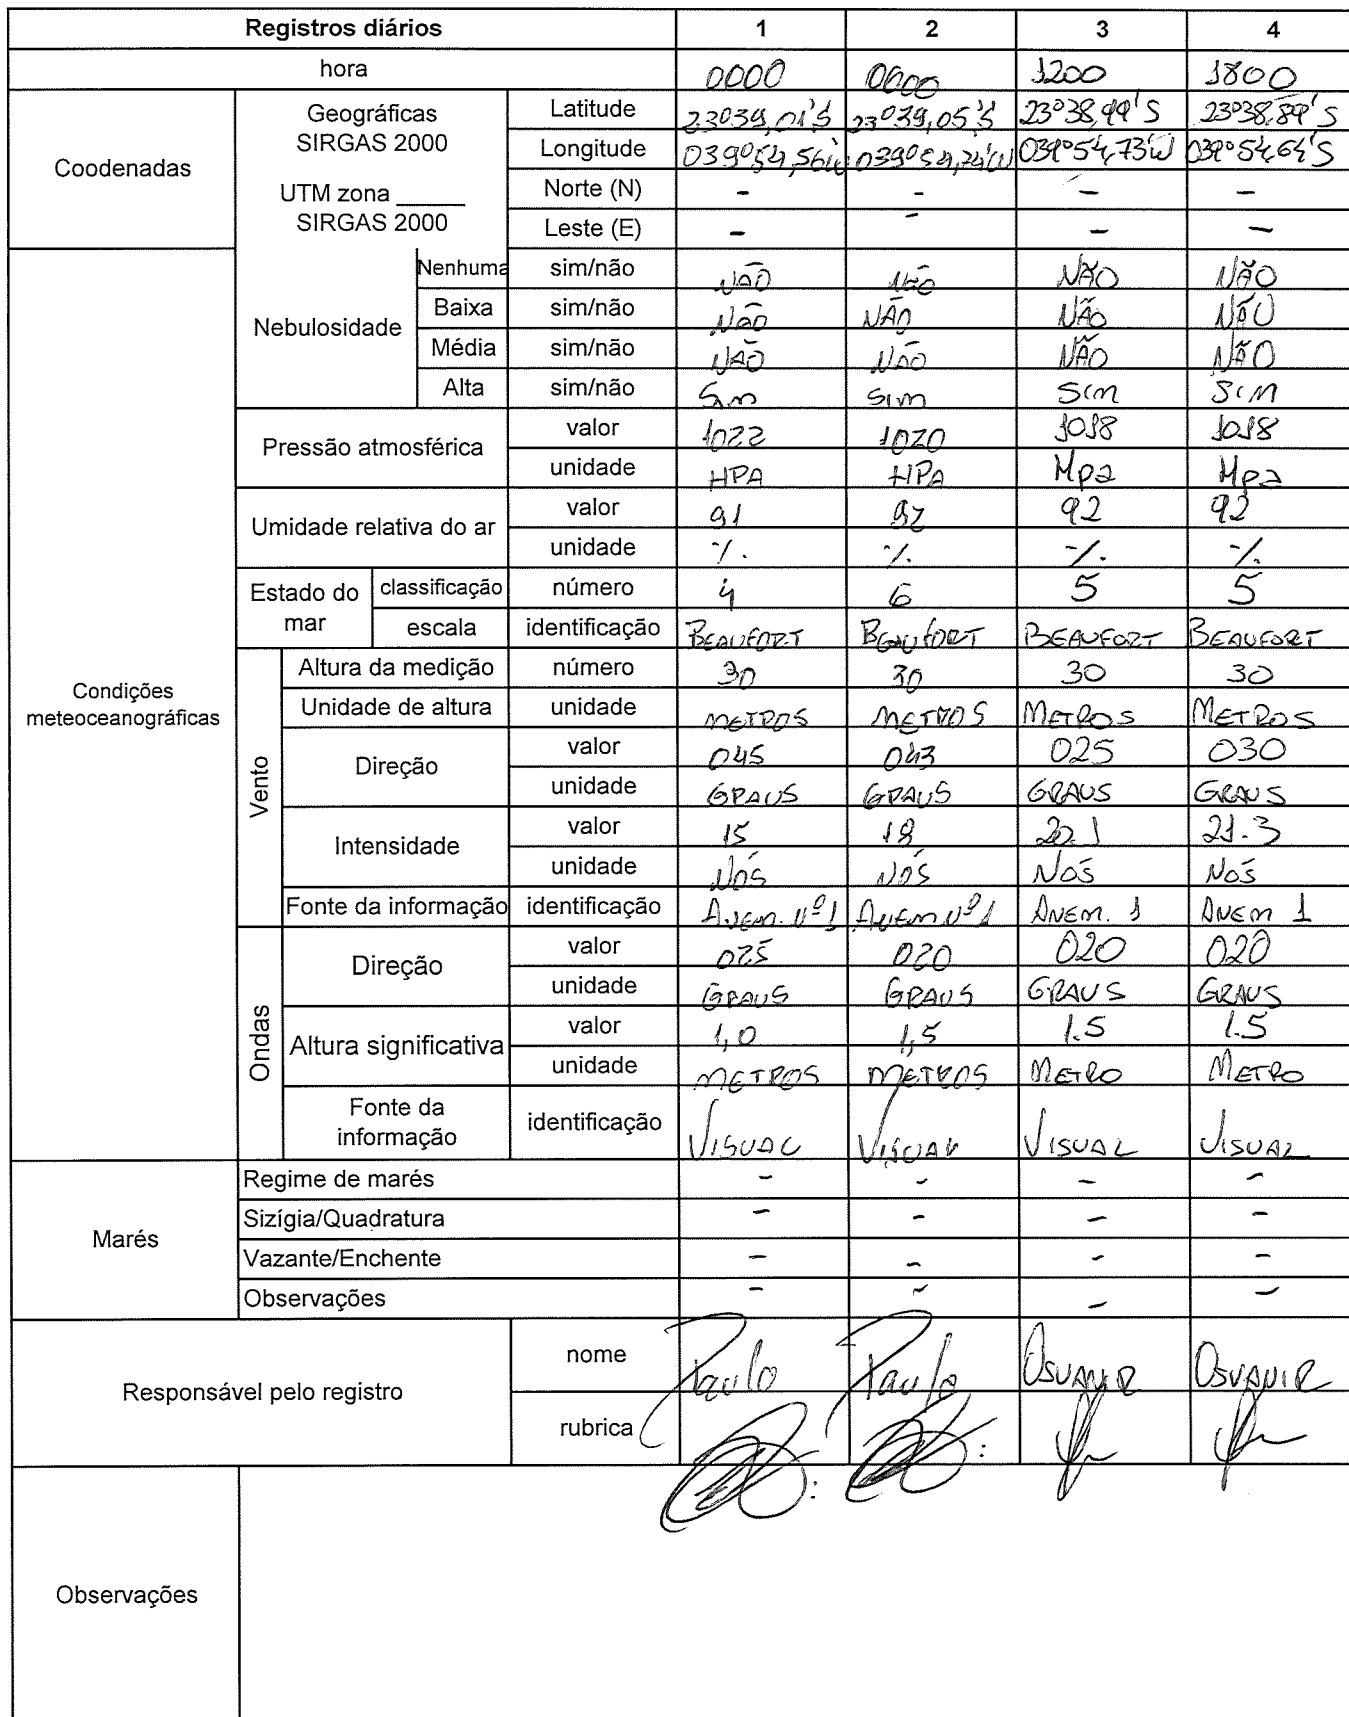 Registros diários 1 2 3 4
hora 0000 0600 1200 1800
Coodenadas
Geográficas
SIRGAS 2000
UTM zona ______
SIRGAS 2000
Latitude 23º39,01'S 23º39,05'S 23º38,99'S 23º38,89'S
Longitude 039º54,56'W 039º54,74'W 039º54,73'W 039º54,64'S
Norte (N) - - - -
Leste (E) - - - -
Condições
meteoceanográficas
Nebulosidade
Nenhuma sim/não NÃO NÃO NÃO NÃO
Baixa sim/não NÃO NÃO NÃO NÃO
Média sim/não NÃO NÃO NÃO NÃO
Alta sim/não Sim Sim SIM SIM
Pressão atmosférica
valor 1022 1020 1018 1018
unidade HPA HPA Mpa Mpa
Umidade relativa do ar
valor 91 92 92 92
unidade % % % %
Estado do
mar
classificação número 4 6 5 5
escala identificação BEAUFORT BEAUFORT BEAUFORT BEAUFORT
Vento
Altura da medição número 30 30 30 30
Unidade de altura unidade METROS METROS METROS METROS
Direção
valor 045 043 025 030
unidade GRAUS GRAUS GRAUS GRAUS
Intensidade
valor 15 18 20.1 21.3
unidade NÓS NÓS NÓS NÓS
Fonte da informação identificação ANEM. Nº1 ANEM Nº1 ANEM. 1 ANEM 1
Ondas
Direção
valor 025 020 020 020
unidade GRAUS GRAUS GRAUS GRAUS
Altura significativa
valor 1,0 1,5 1.5 1.5
unidade METROS METROS METRO METRO
Fonte da
informação
identificação VISUAL VISUAL VISUAL VISUAL
Marés
Regime de marés - - - -
Sizígia/Quadratura - - - -
Vazante/Enchente - - - -
Observações - - - -
Responsável pelo registro
nome Paulo Paulo OSVANIR OSVANIR
rubrica
Observações